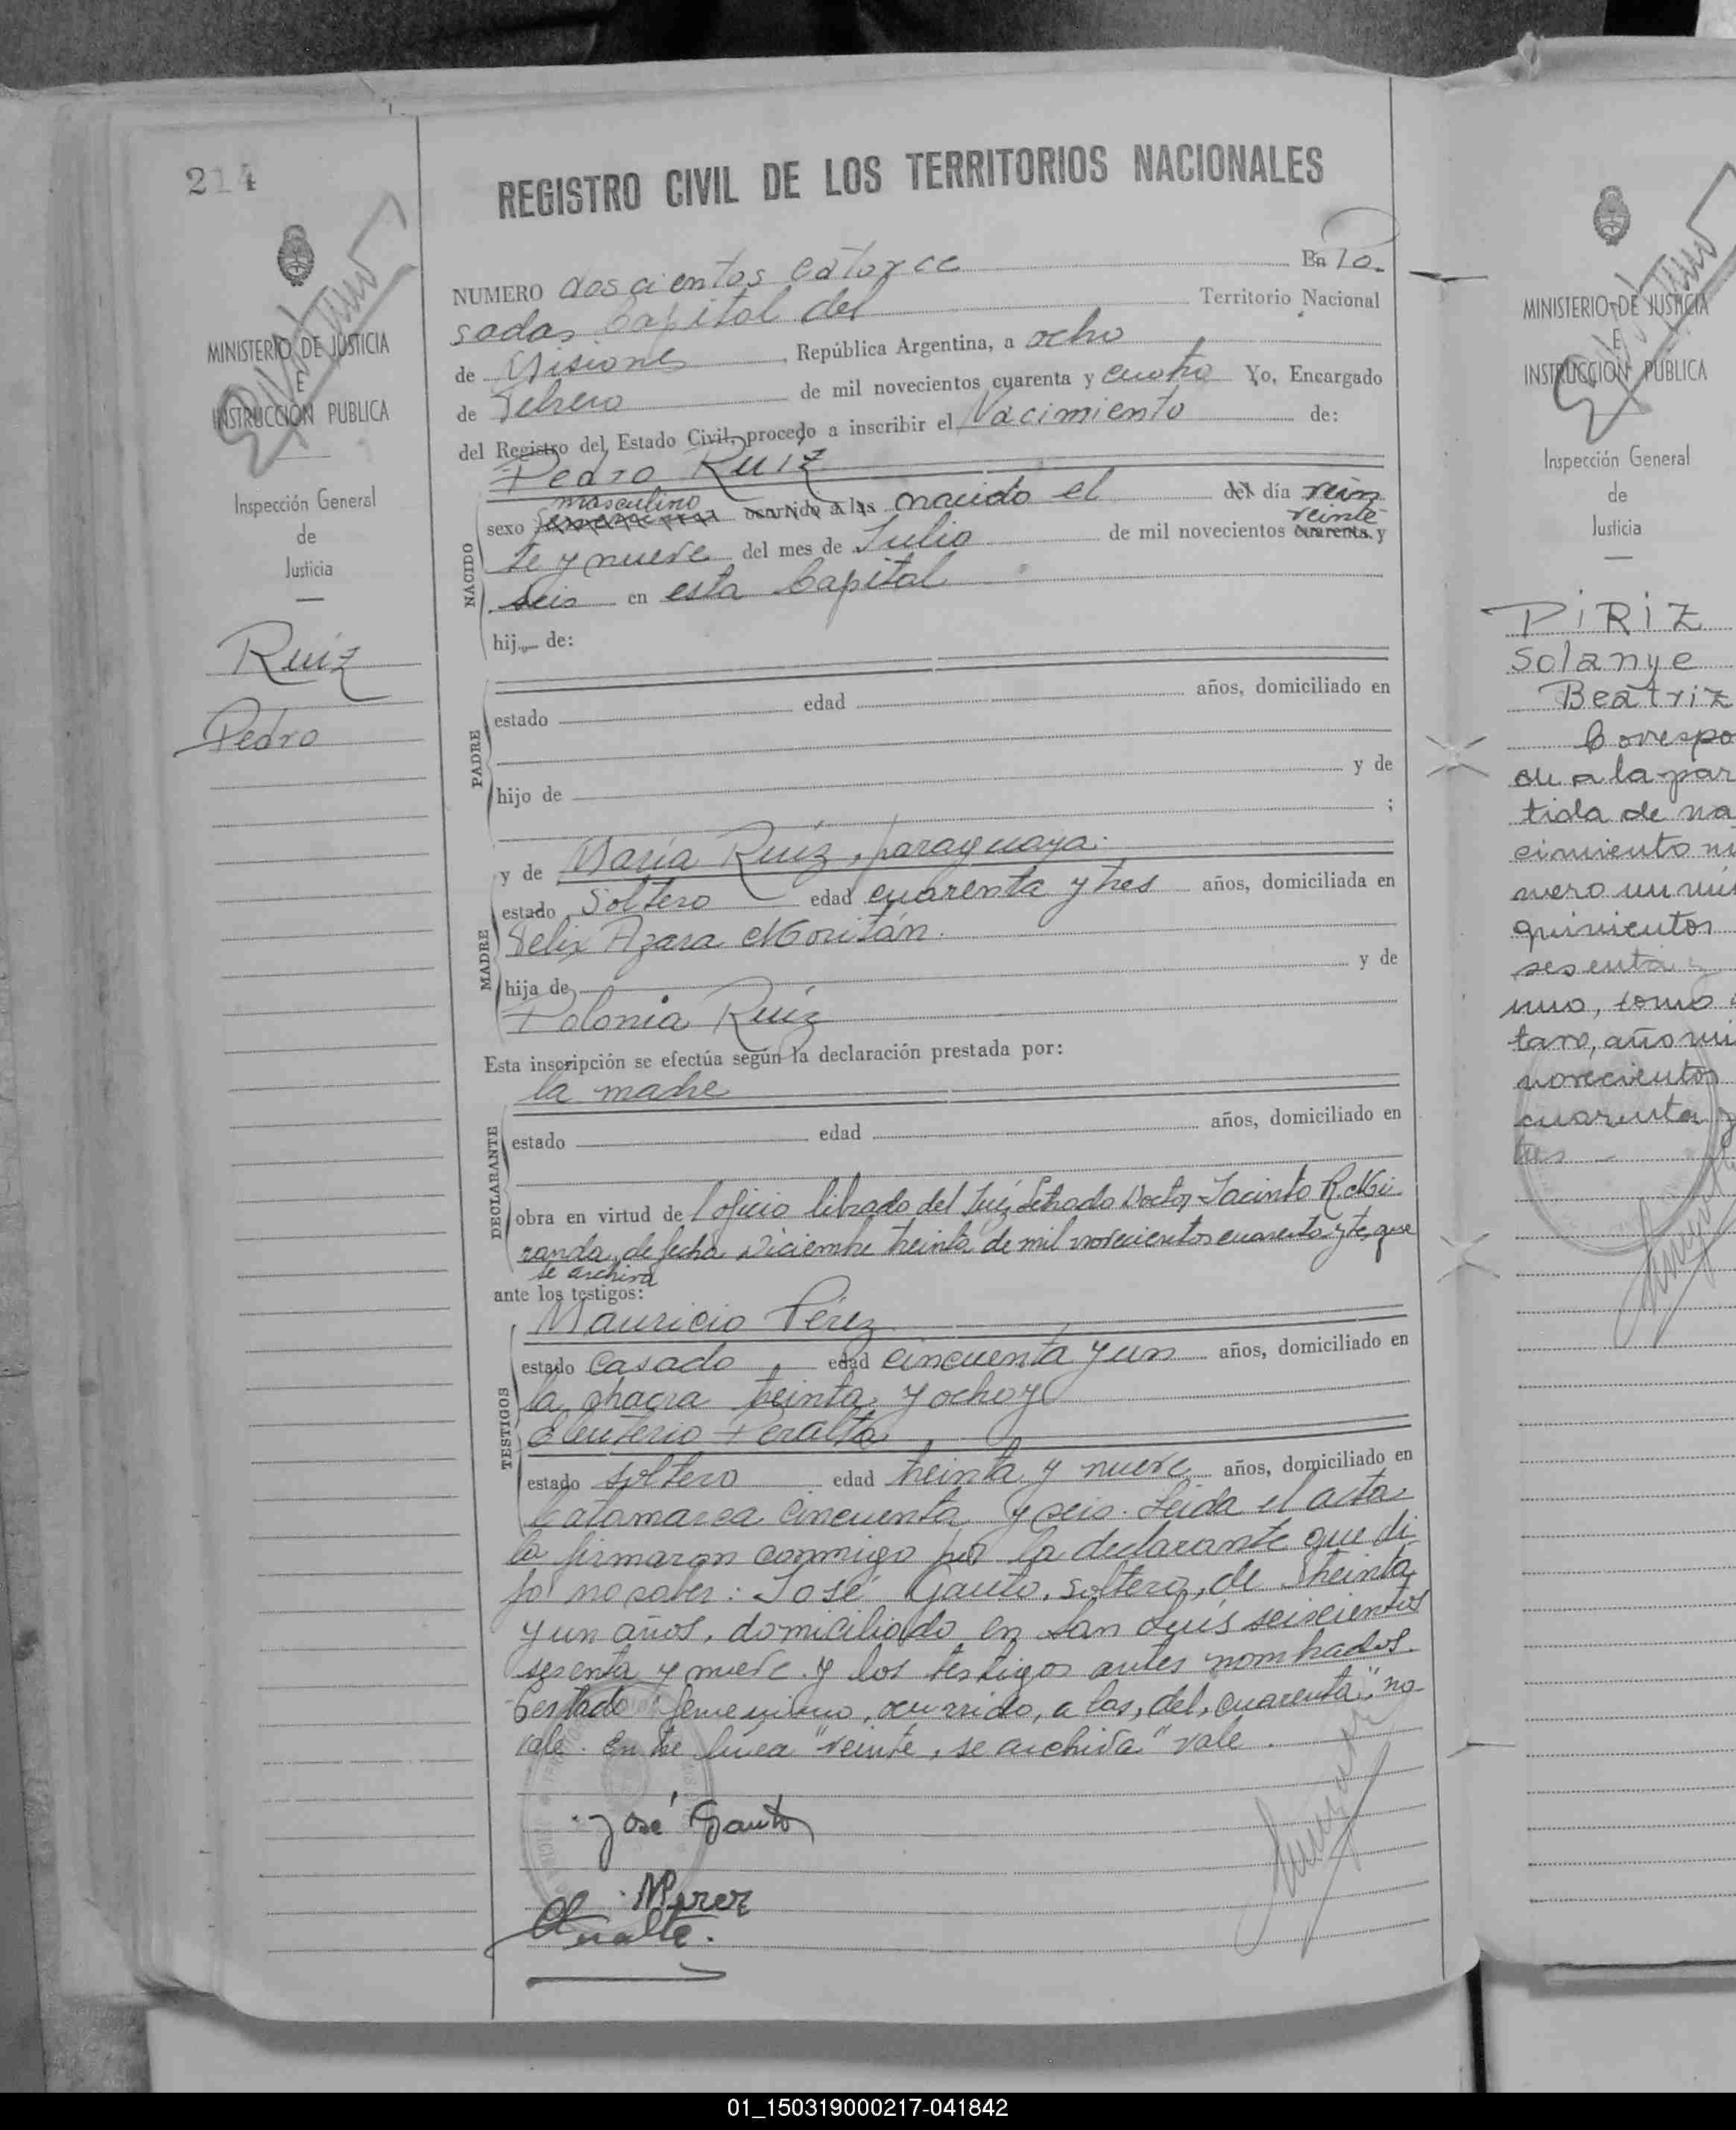 214
MINISTERIO DE JUSTICIA
E
INSTRUCCION PUBLICA
Inspección General
de
Justicia
Ruíz
Pedro
REGISTRO CIVIL DE LOS TERRITORIOS NACIONALES
NUMERO doscientos catorce En Po-
sadas Capital del Territorio Nacional
de Misiones, República Argentina, a ocho
de Febrero de mil novecientos cuarenta y cuatro Yo, Encargado
del Registro del Estado Civil, procedo a inscribir el Nacimiento de:
Pedro Ruíz
masculino
sexo femenino ocurrido a las nacido el del día vein
veinte
te y nueve del mes de Julio de mil novecientos cuarenta y
seis en esta Capital
NACIDO
hij de:
estado edad años, domiciliado en
PADRE
hijo de y de
;
y de María Ruíz, paraguaya.
estado Soltero edad cuarenta y tres años, domiciliada en
Felix Azara Moritán.
MADRE
hija de y de
Polonia Ruíz
Esta inscripción se efectúa según la declaración prestada por:
la madre
estado edad años, domiciliado en
DECLARANTE
obra en virtud de oficio librado del Juéz Letrado Doctor Jacinto R. Mi
randa, de fecha Diciembre treinta de mil novecientos cuarenta y que
se archiva
ante los testigos:
Mauricio Pérez
estado casado, edad cincuenta y un años, domiciliado en
la chacra treinta y ocho y
Eleuterio Peralta
TESTIGOS
estado soltero edad treinta y nueve años, domiciliado en
Catamarca cincuenta y seis. Leida el acta
la firmaron conmigo por la declarante que di
jo no saber: José Gauto, soltero, de treinta
y un años, domiciliado en San Luís seiscientos
sesenta y nueve y los testigos antes nombrados.
Testado "femenino, ocurrido, a las, del, cuarenta", no
vale. Entre línea "veinte, se archiva" vale.
José Gauto
MPerez
Peralta.
MINISTERIO DE JUSTICIA
E
INSTRUCCION PUBLICA
Inspección General
de
Justicia
PIRIZ
Solanye
Beatriz
Correspo
de a la par
tida de na
cimiento nu
mero un mil
quinientos
sesenta
uno, tomo
taro, año mi
novecientos
cuarenta y
tres
01_150319000217-041842